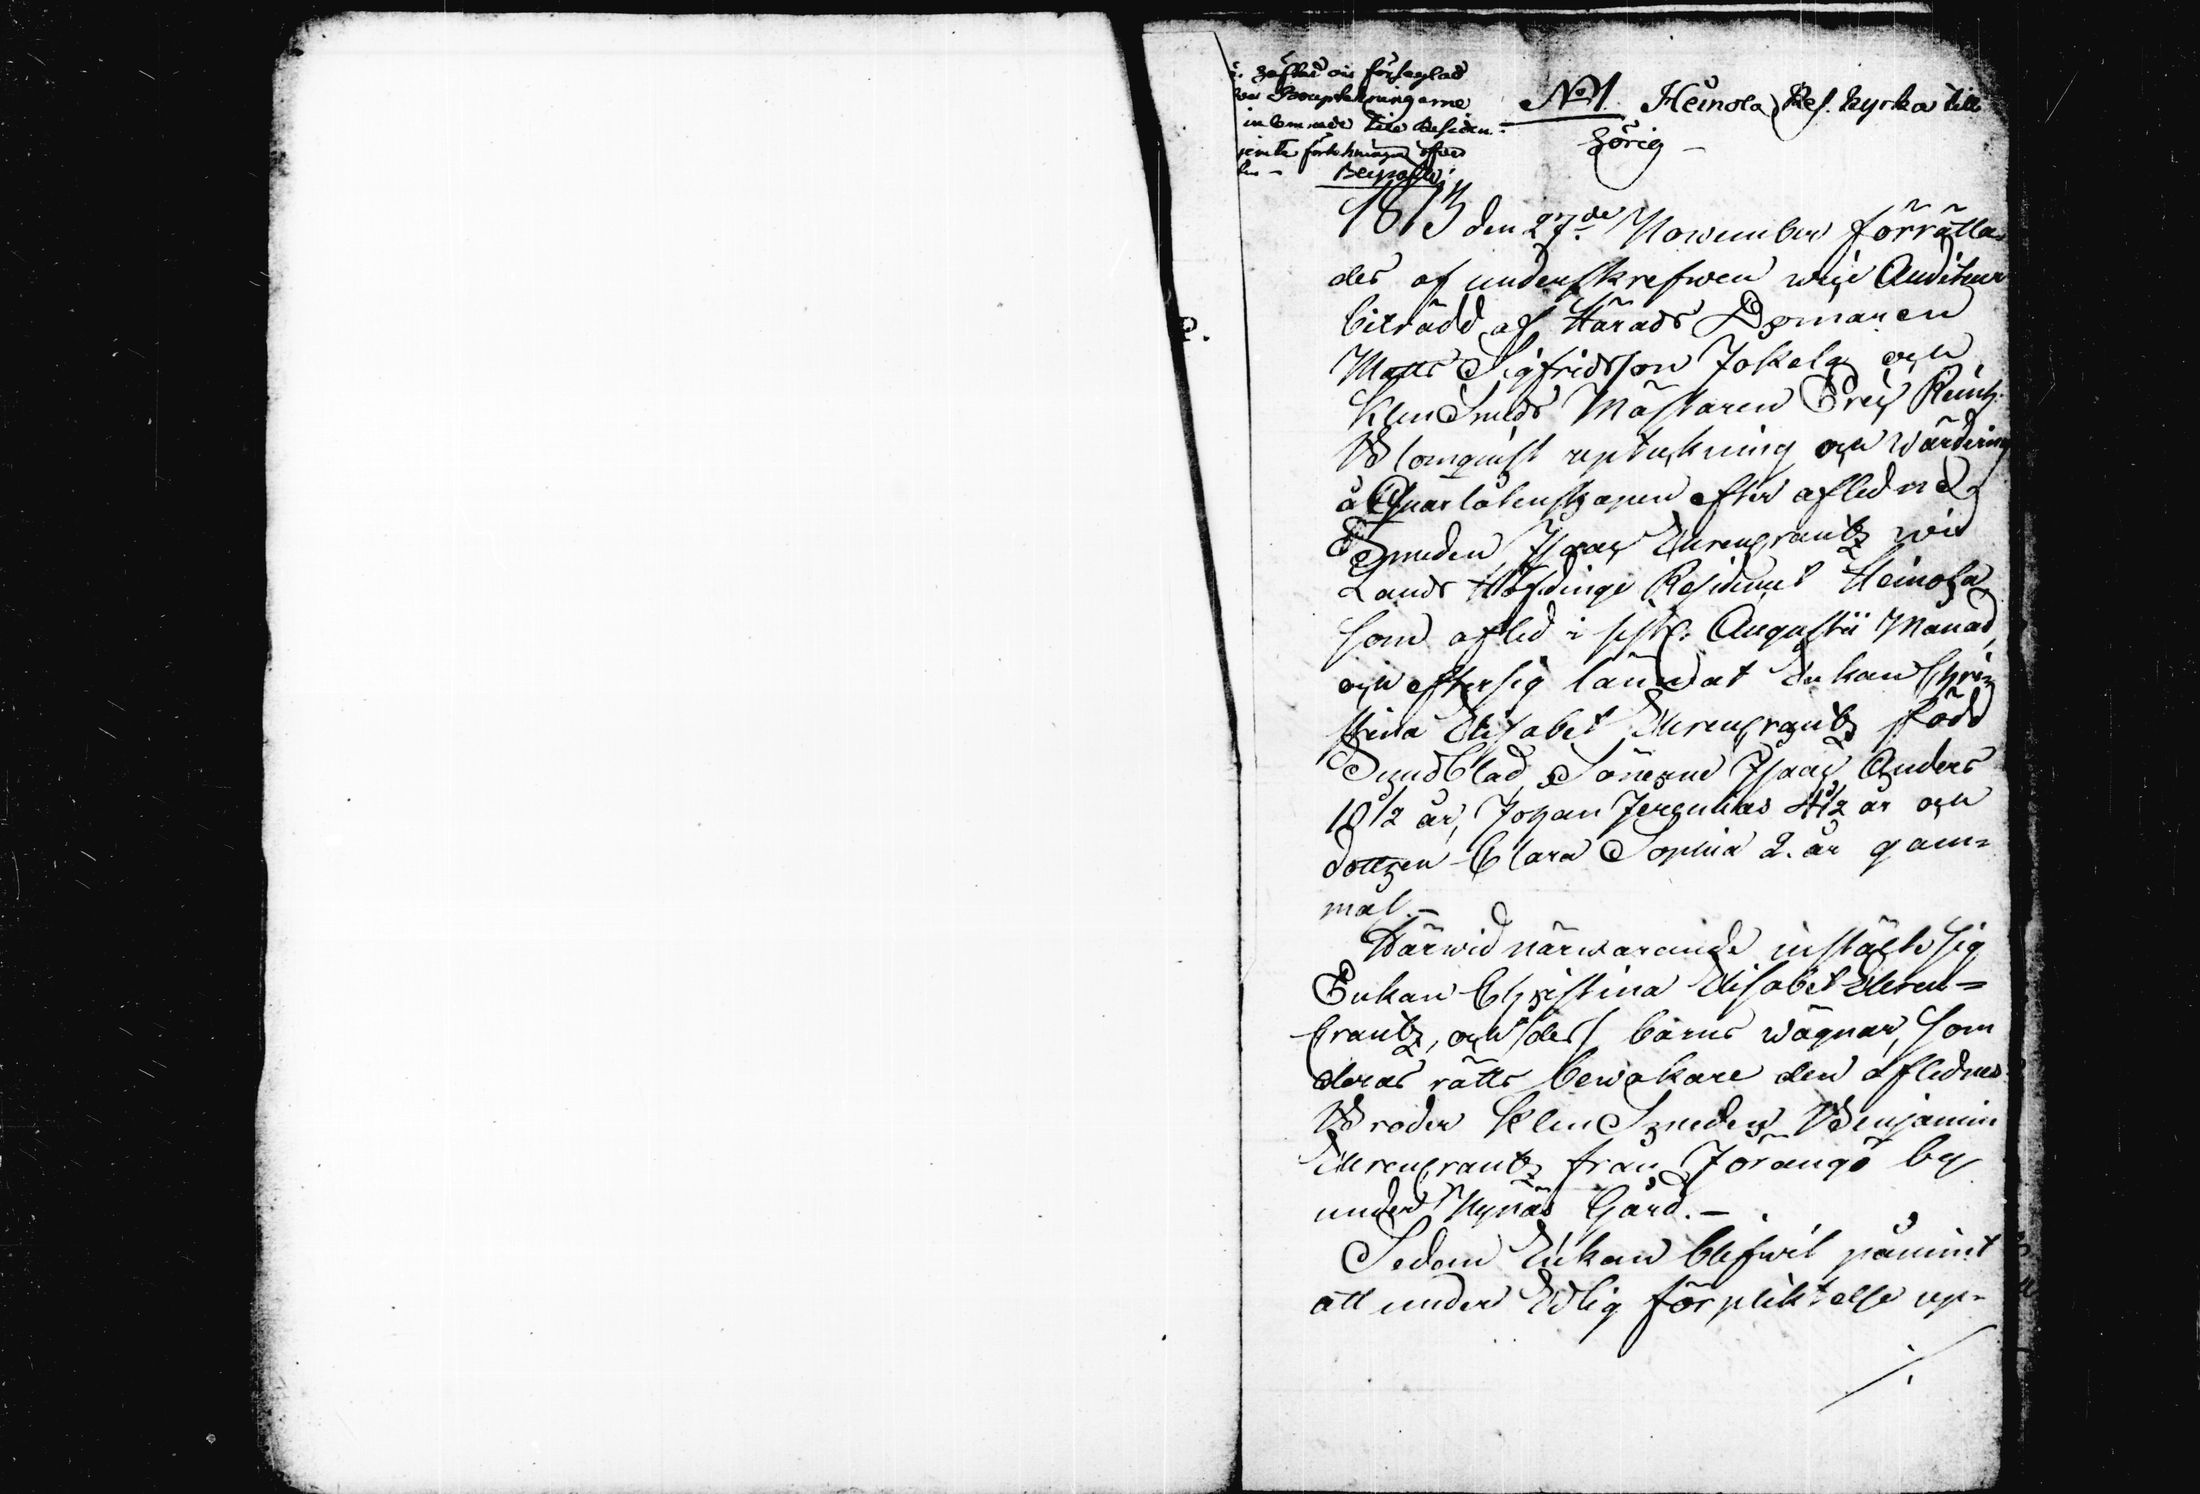 häftad och förseglad
Bouptekningarne
inlemnade till Residen-
jemte förtekningen öfver
No 1. Heinola Res. kyrka till
hörig –
1813 den 27de November förrätta-
des af underskrefwen vice Auditeur
biträdd af Härads Domaren
Matts Sigfridsson Jokela och
Klen Smeds Mästaren Eric Reinh:
Blomquist uptekning och Wärdering
å Qwarlåtenskapen efter aflednd
Smeden Isaac Ehrencrantz wid
Lands Höfdinge Residencet Heinola
som afled i sistl: Augustii Månad,
och efter sig lämnat Enkan Chri-
stina Elisabet Ehrencrantz född
Sundblad, Sönerne Isaac Anders
10 1/2 år, Johan Jeremias 4 1/2 år och
dottren Clara Sophia 2. år gam-
mal. –
Härwid närwarande instälte sig
Enkan Christina Elisabet Ehren-
crantz, och dess barns wägnar, som
deras rätts bewakare den aflednes
Broder Klen Smeden Benjamin
Ehrencrantz från Jorango by
under Nynäs Gård. –
Sedan Enkan blifwit påmint
att under Edlig förpliktelse up-
./.